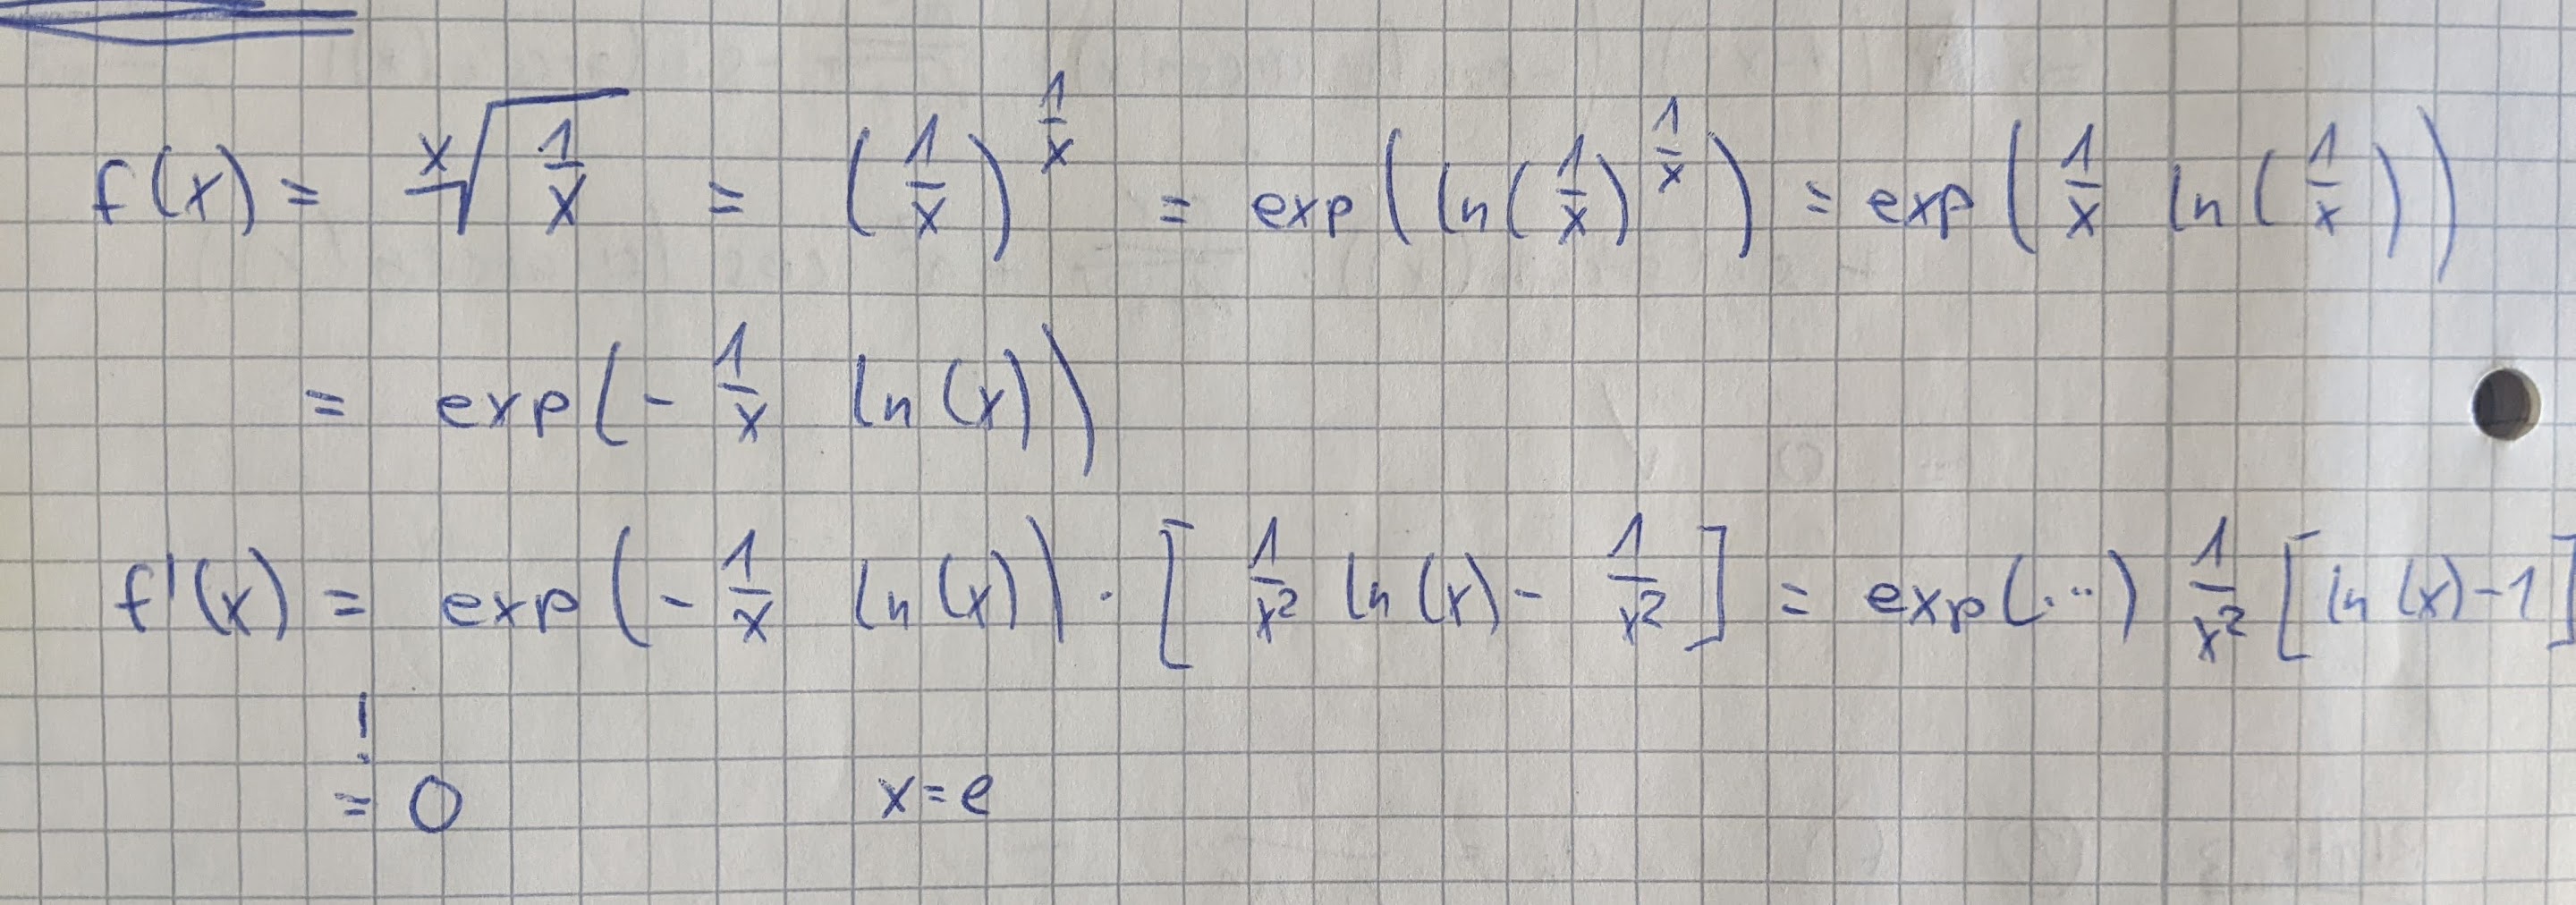 f(x) = ˣ√(1/x) = (1/x)^(1/x) = exp(ln(1/x)^(1/x)) = exp(1/x ln(1/x))
= exp(- 1/x ln(x))
f'(x) = exp(- 1/x ln(x)) · [1/x² ln(x) - 1/x²] = exp(...) 1/x² [ln(x)-1]
!
= 0 x=e